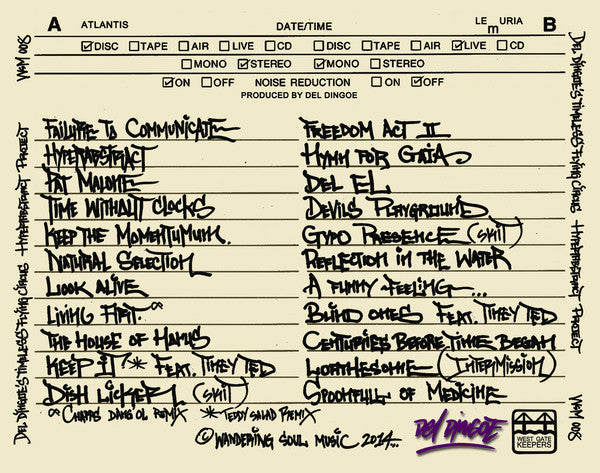 A ATLANTIS DATE/TIME LEmURIA B
DISC TAPE AIR LIVE CD DISC TAPE AIR LIVE CD
MONO STEREO MONO STEREO
ON OFF NOISE REDUCTION ON OFF
PRODUCED BY DEL DINGOE
FAILURE TO COMMUNICATE
HYPERABSTRACT
PAT MALONE
TIME WITHOUT CLOCKS
KEEP THE MOMENTUMUM.
NATURAL SELECTION
LOOK ALIVE
LIVING FIRST.∞
THE HOUSE OF
KEEP IT * FEAT. THEY TED
DISH LICKER (SKIT)
FREEDOM ACT II
HYMN FOR GAIA
DEL EL
DEVILS PLAYGROUND
GYPO PRESENCE (SKIT)
REFLECTION IN THE WATER
A FUNNY FEELING...
BLIND ONES FEAT. THEY TED
CENTURIES BEFORE TIME BEGAN
LOATHESOME (INTERMISSION)
SPOONFULL OF MEDICINE
∞ CHAPPS DANG OL REMIX * TEDDY SALAD REMIX
© WANDERING SOUL MUSIC 2014..
DEL DINGOE
WEST GATE
KEEPERS
DEL DINGOE'S TIMELESS FLYING CIRCUS HYPERABSTRACT PROJECT WAM 008
DEL DINGOE'S TIMELESS FLYING CIRCUS HYPERABSTRACT PROJECT WAM 008